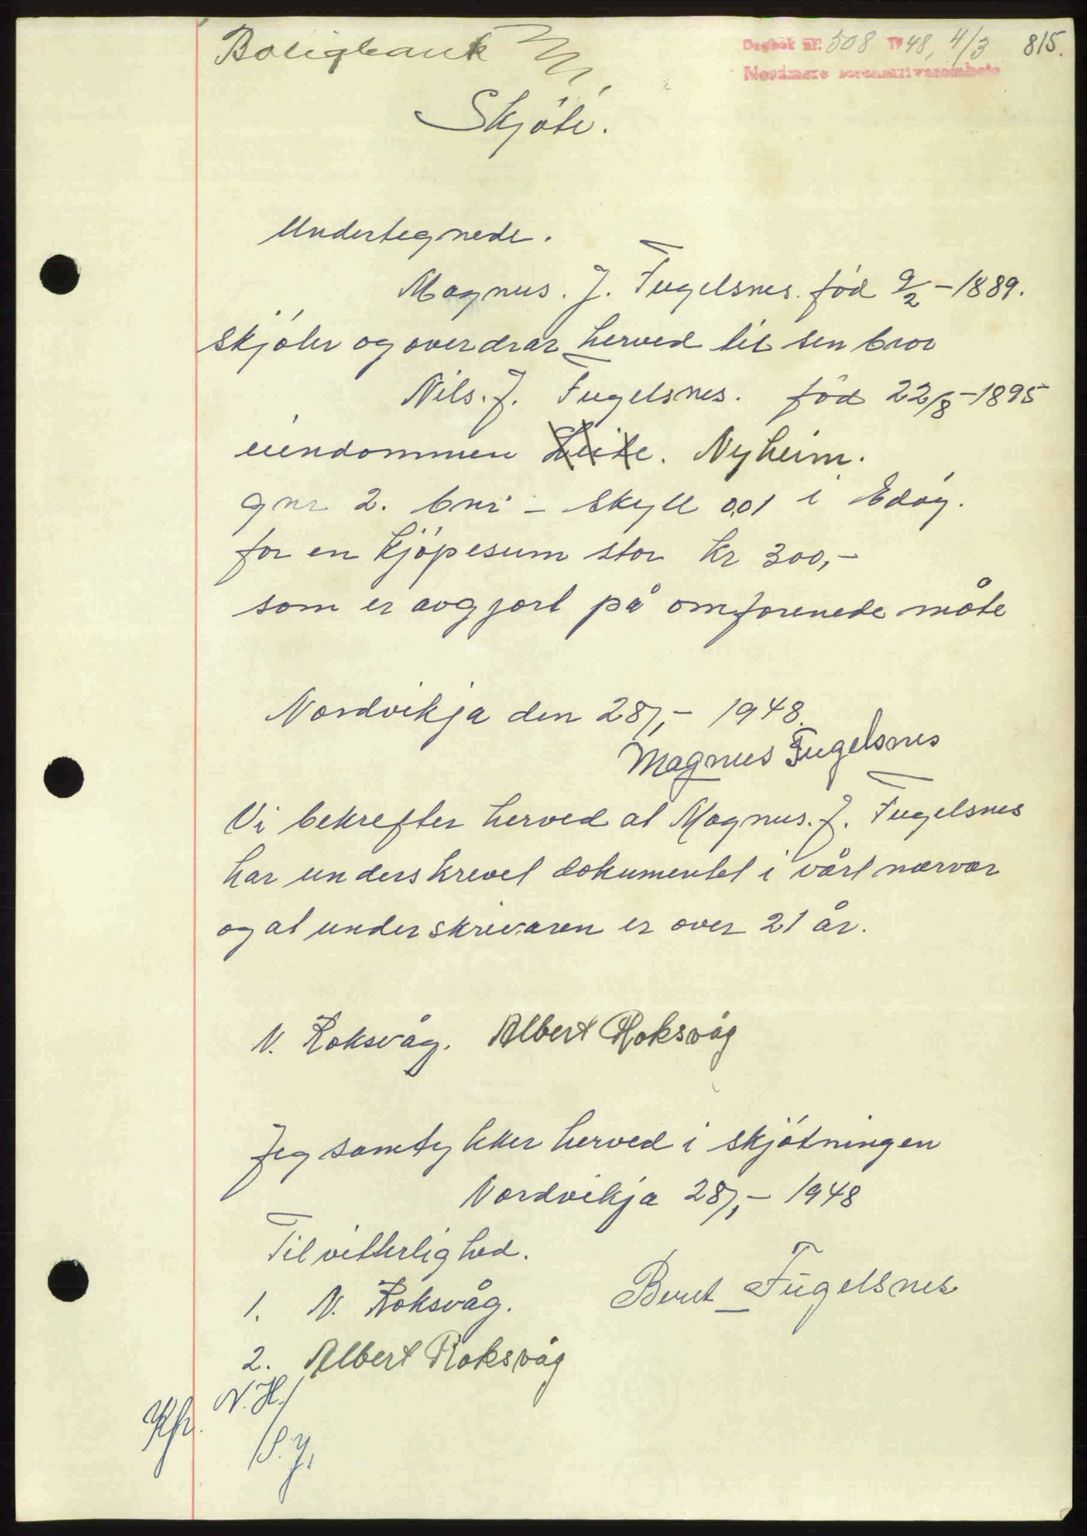 Boligbank
Dagbok nr. 508 19 48, 4/3 815.
Nordmøre sorenskriverembete
Skjöte.
Undertegnede.
Magnus. J. Fugelsnes. född 9/2 - 1889.
skjöter og overdrar herved til sin bror
Nils. J. Fugelsnes. född 22/8 - 1895
eiendommen Nyheim.
gnr 2. bnr - skyll 0,01 i Edöy.
for en kjöpesum stor kr 300,-
som er avgjort på omforenede måte
Nordvikja den 28/1 - 1948.
Magnus Fugelsnes
Vi bekrefter herved at Magnus. J. Fugelsnes
har underskrevet dokumentet i vårt nærvær
og at underskrivaren er over 21 år.
N. Roksvåg. Albert Roksvåg
Jeg samtykker herved i skjötningen
Nordvikja 28/1 - 1948
Til vitterlighed.
1. N. Roksvåg. Berit Fugelsnes
2. Albert Roksvåg
Kfr. N.H./
/S.J.